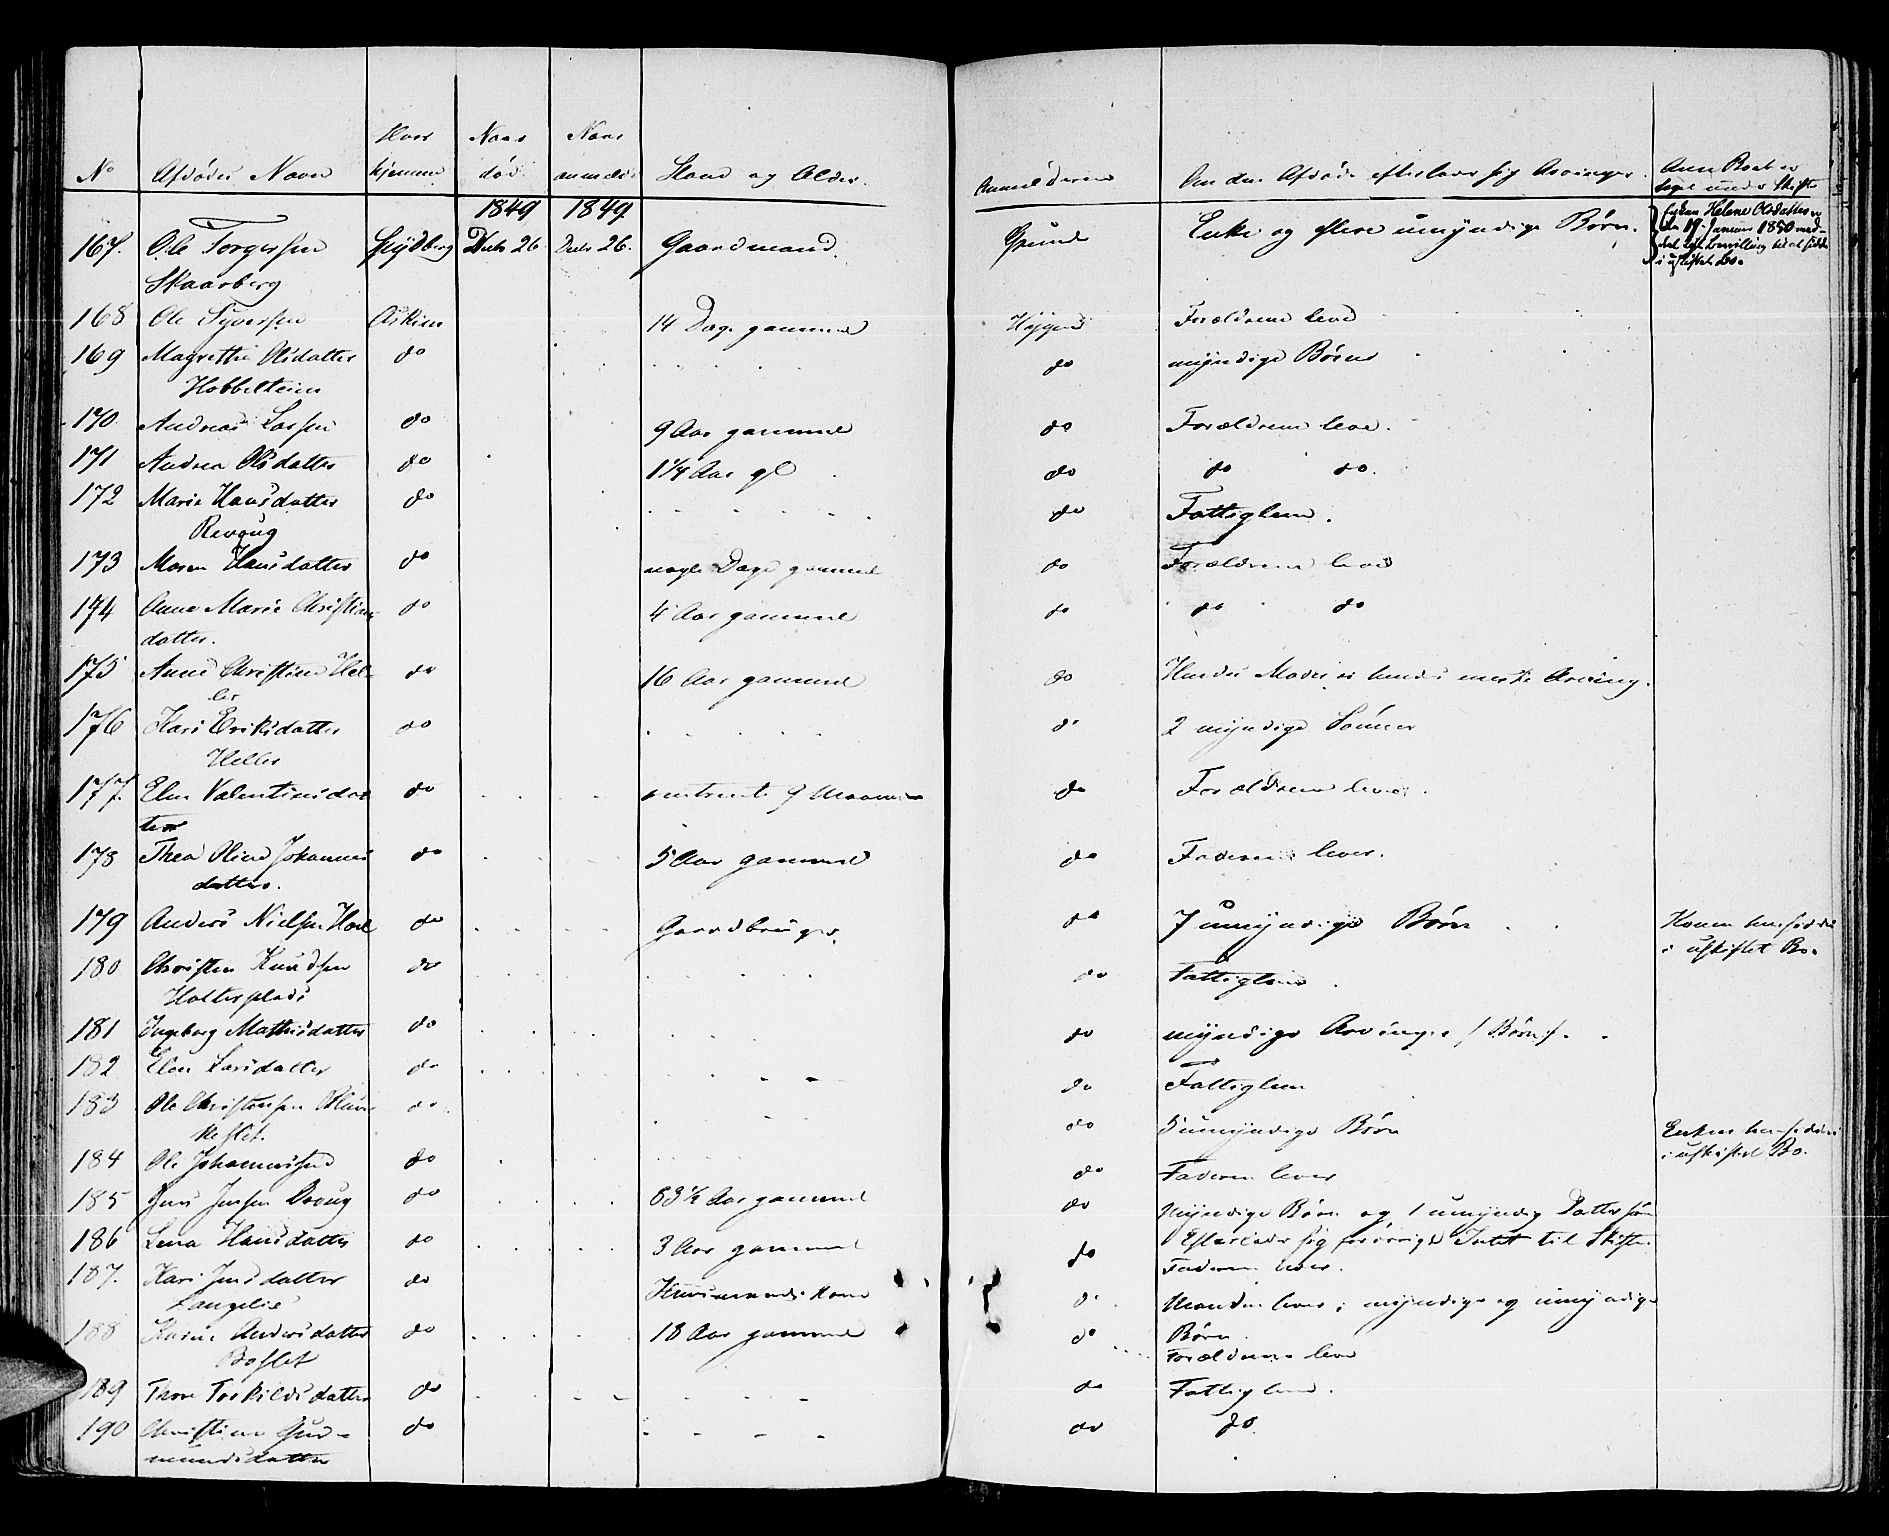 No Afdødes Navn Hvor hjemme Naar død Naar anmeldt Stand og Alder. Anmelderen Om den Afdøde efterlader sig Arvinger. Anm. Boet er taget under Skifte
1849 1849
167. Ole Torgersen Spydberg Decbr 26 Decbr 26. Gaardmand. Grund Enke og flere umyndige Børn. Enken Helene Olsdatter er den 19. Januar 1850 meddelt Bevilling til at sidde i uskiftet Bo.
Skaarberg
168 Ole Syversen Askim 14 Dage gammel Forældrene leve
169 Magrethe Olsdatter do do myndige Børn
Hobbelstein
170. Andreas Larsen do 9 Aar gammel do Forældrene leve.
171 Andrea Olsdatter do 1 1/4 Aar gl do do do.
172 Marie Hansdatter do do Fattiglem.
Revoug
173 Maren Hansdatter do nogle Dage gammel do Forældrene leve
174 Anne Marie Christian- do 4 Aar gammel do do do
datter.
175 Anne Christine Hel- do 16 Aar gammel do Hendes Moder er hendes næste Arving.
ler
176 Kari Eriksdatter do do 2 myndige Sønner
Heller
177. Elen Valentinsdat do omtrent 9 Maaneder do Forældrene lever.
ter
178 Thea Oline Johannes do 5 Aar gammel do Faderen lever.
datter.
179 Anders Nielsen Hol do Gaardbruger. do 7 umyndige Børn Konen hensidder
i uskiftet Bo.
180 Christen Knudsen do do Fattiglem
Holterplads
181 Ingeborg Mathisdatter do do myndige Arvinger /: Børn :/.
182 Elen Larsdatter do do Fattiglem
183 Ole Christensen do do 5 umyndige Børn Enken hensidder
i uskiftet Bo.
184 Ole Johannessen do do Faderen lever
185 Jens Jensen do 63 1/2 Aar gammel do myndige Børn og 1 umyndig Dattersøn
186 Lena Hansdatter do 3 Aar gammel do Efterlader sig forøvrigt Intet til Skifte.
Faderen lever.
187. Kari Jensdatter do Huusmands Kone do Manden lever; myndige og umyndige
Langelie Børn.
188 Karen Andersdatter do 18 Aar gammel do Forældrene leve
Boslet
189 Thore Torkildsdatter do do Fattiglem.
190 Christine Gud- do do do.
mundsdatter